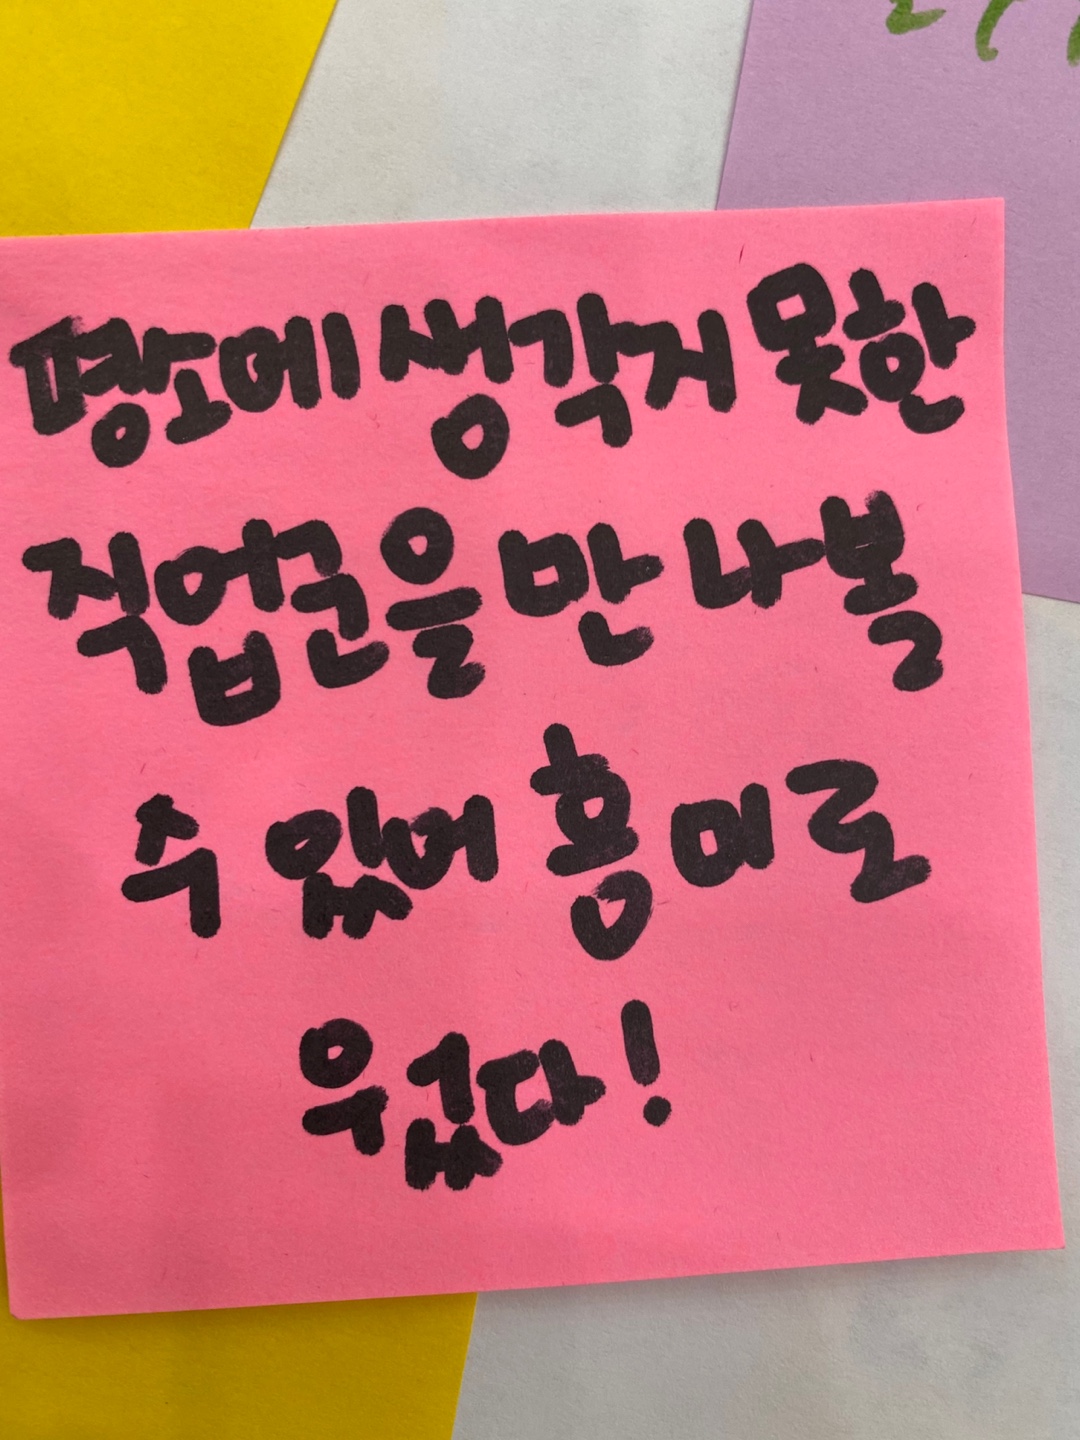 평소에 생각지 못한
직업군을 만나볼
수 있어 흥미로
웠다!